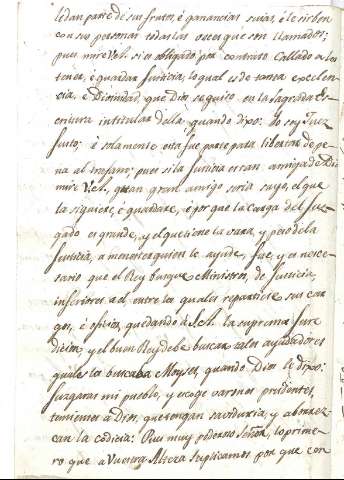 le dan parte de sus frutos, é ganancias suias, é le sirben
con sus personas todas las veces que son llamados;
pues mire V.A. si es obligado por contrato callado a los
tener, é guardar Justicia, lo qual es de tanta excelen-
cia, é Dignidad, que Dios se quiso en la Sagrada Es-
critura intitular della, quando dijo: Yo soy Juez
Justo; é solamente esta fue parte para libertar de pe-
na al trajano; pues si la Justicia es tan amiga de Dios
mire V.A. quan gran amigo seria suyo, el que
la siguiere, é guardare, é por que la carga del Juz-
gado es grande, y el que tiene la vara, y peso de la
Justicia, a menester quien le ayude, fue, y es neces-
sario que el Rey busque Ministros, de Justicia,
inferiores a el, entre los quales repartiese sus car-
gos, é oficios, quedando á S.A. la suprema Juris-
dicion, y el buen Rey debe buscar tales ayudadores
quales los buscaba Moyses, quando Dios le dijo:
Juzgaras mi pueblo, y escoge varones prudentes,
temientes a Dios, que tengan saviduria, y aborrez-
can la codicia: Pues muy poderoso Señor, lo prime-
ro que a Vuestra Alteza suplicamos por que con